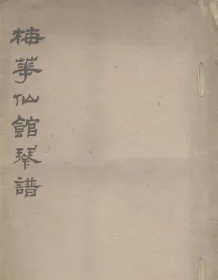 梅華仙館琴譜